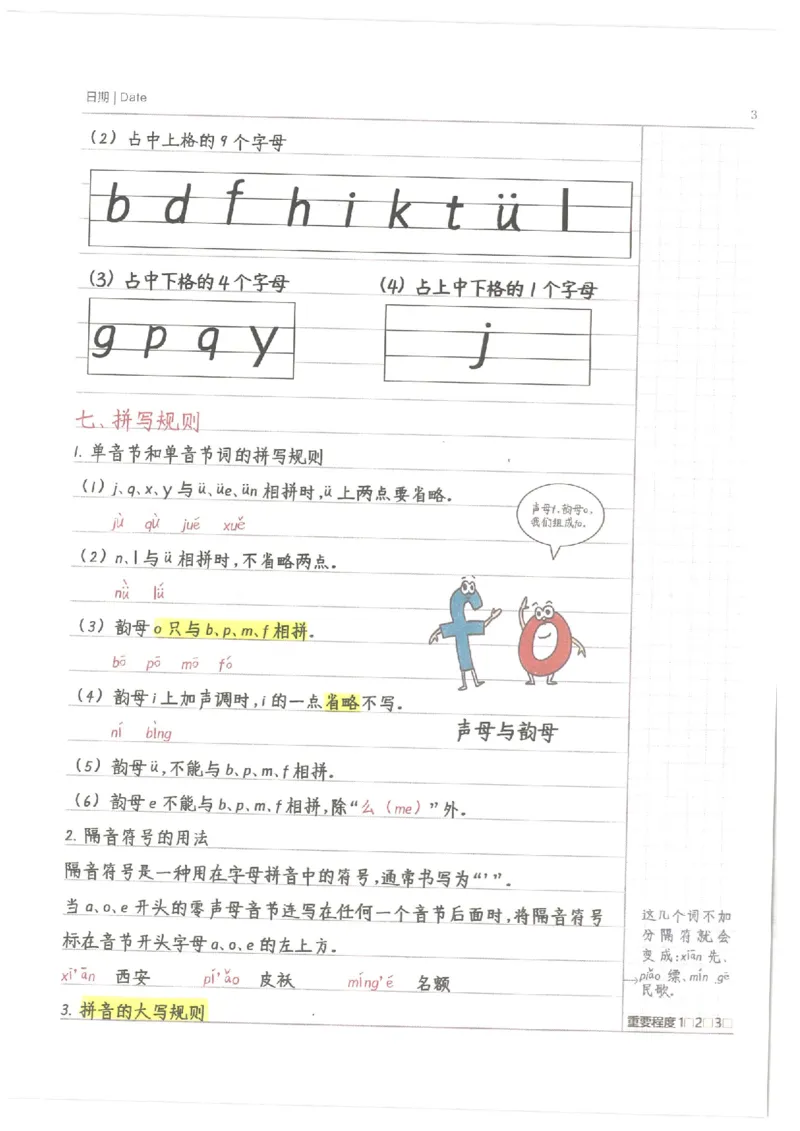 日期 | Date
3
(2) 占中上格的9个字母
b d f h i k t ü l
(3) 占中下格的4个字母
(4) 占上中下格的1个字母
g p q y
j
七、拼写规则
1. 单音节和单音节词的拼写规则
(1) j、q、x、y与ü、üe、ün相拼时,ü上两点要省略。
jù qù jué xuě
声母f,韵母o,
我们组成fo.
(2) n、l与ü相拼时,不省略两点。
nǜ lǘ
(3) 韵母o只与b、p、m、f相拼。
bō pō mō fó
(4) 韵母i上加声调时,i的一点省略不写。
ní bìng
声母与韵母
(5) 韵母ü,不能与b、p、m、f相拼。
(6) 韵母e不能与b、p、m、f相拼,除“么(me)”外。
2. 隔音符号的用法
隔音符号是一种用在字母拼音中的符号,通常书写为“ ’ ”。
当a、o、e开头的零声母音节连写在任何一个音节后面时,将隔音符号
标在音节开头字母a、o、e的左上方。
xī’ān 西安 pí’ǎo 皮袄 míng’é 名额
这几个词不加
分隔符就会
变成:xiān先、
piǎo缥、mín gē
民歌。
3. 拼音的大写规则
重要程度 1□2□3□